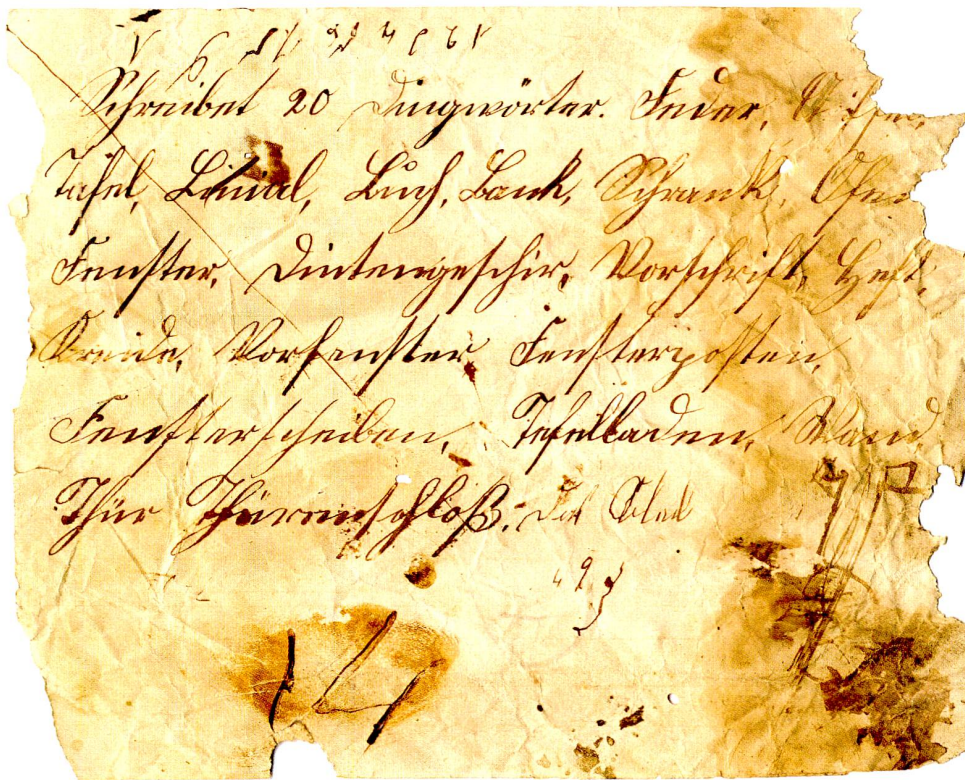 Schreibet 20 Dingwörter. Feder,
Tafel, Lineal, Buch, Bank, Schrank, Ofen
Fenster, Dintengeschir, Vorschrift, Heft,
Kreide, Vorfenster, Fensterposten,
Fensterscheiben, Tefelladen, Wand
Thür Thürenschloß.